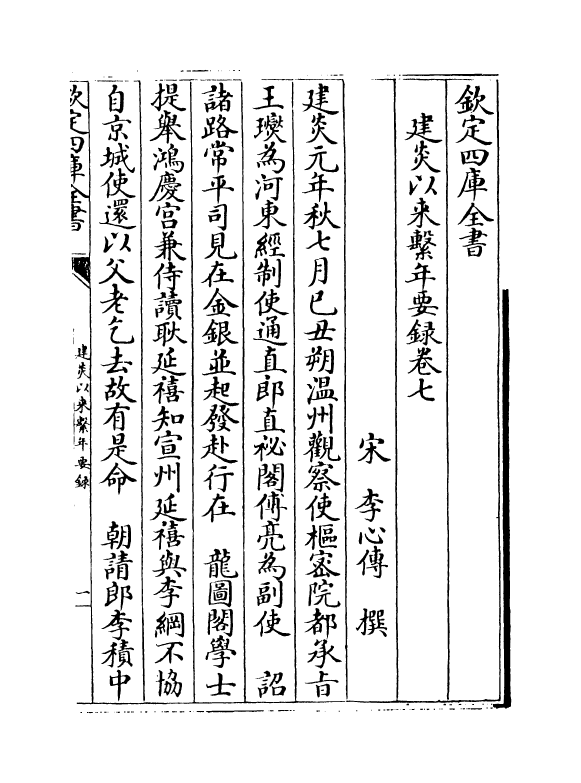 欽定四庫全書
建炎以来繫年要録卷七
宋　李心傳　撰
建炎元年秋七月已丑朔温州觀察使樞宻院都承㫖
王𤫉為河東經制使通直郎直祕閣傅亮為副使　詔
諸路常平司見在金銀並起發赴行在　龍圖閣學士
提舉鴻慶宫兼侍讀耿延禧知宣州延禧與李綱不協
自京城使還以父老乞去故有是命　朝請郎李積中
欽定四庫全書
建炎以来繫年要録
一